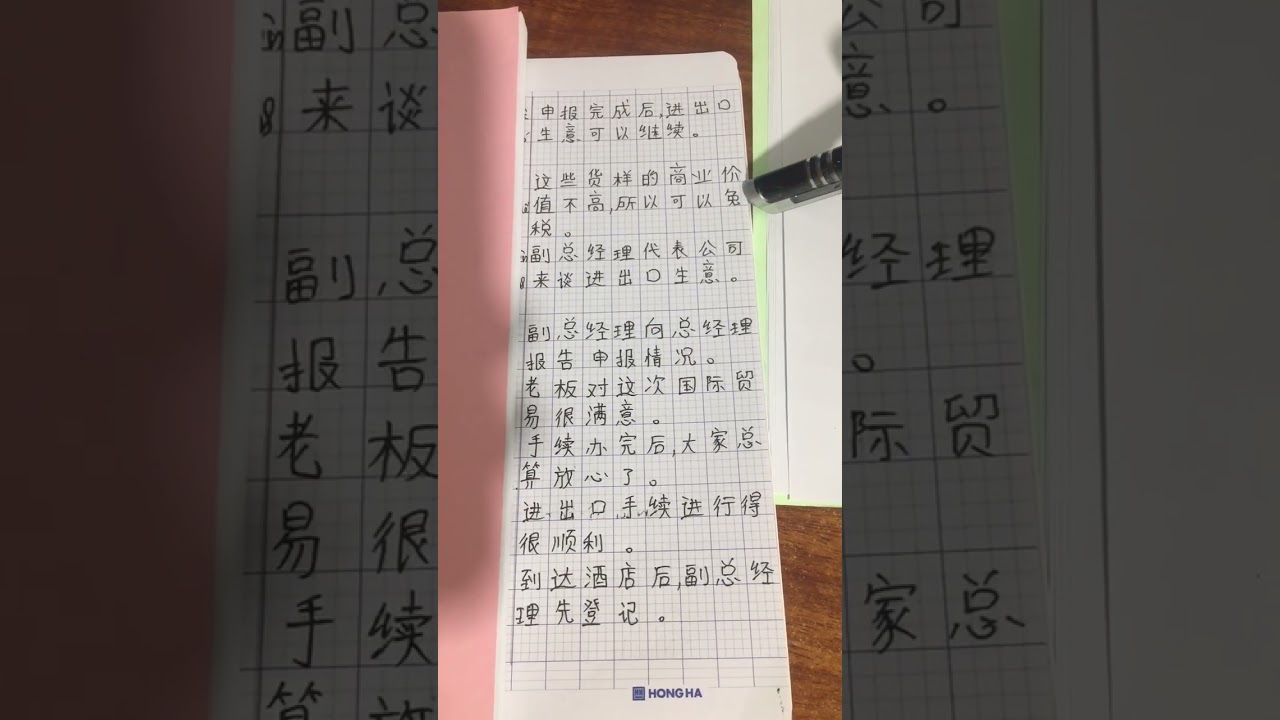 申报完成后,进出口
生意可以继续。
这些货样的商业价
值不高,所以可以免
税。
副总经理代表公司
来谈进出口生意。
副总经理向总经理
报告申报情况。
老板对这次国际贸
易很满意。
手续办完后,大家总
算放心了。
进出口手续进行得
很顺利。
到达酒店后,副总经
理先登记。
HONG HA